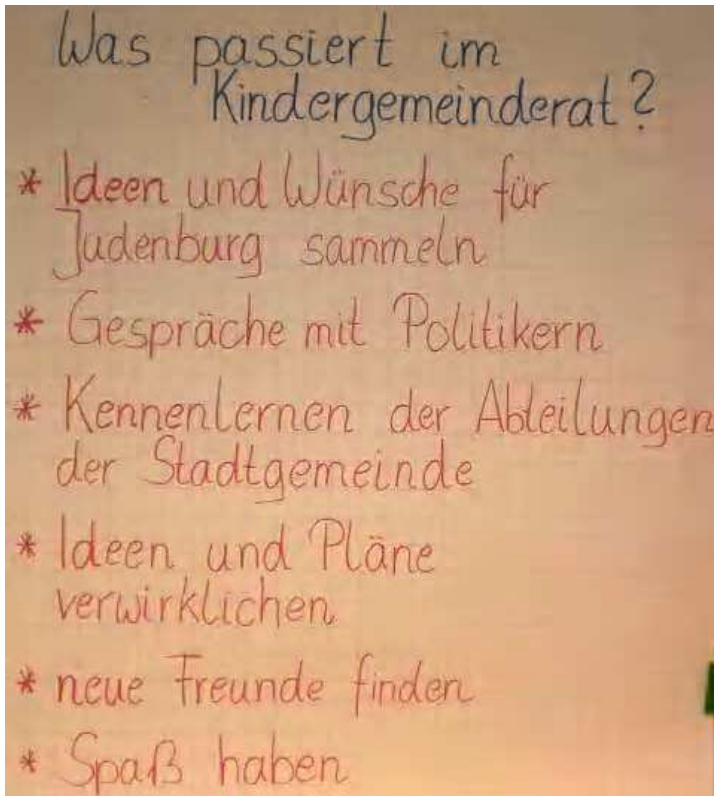 Was passiert im
Kindergemeinderat?
* Ideen und Wünsche für
Judenburg sammeln
* Gespräche mit Politikern
* Kennenlernen der Abteilungen
der Stadtgemeinde
* Ideen und Pläne
verwirklichen
* neue Freunde finden
* Spaß haben